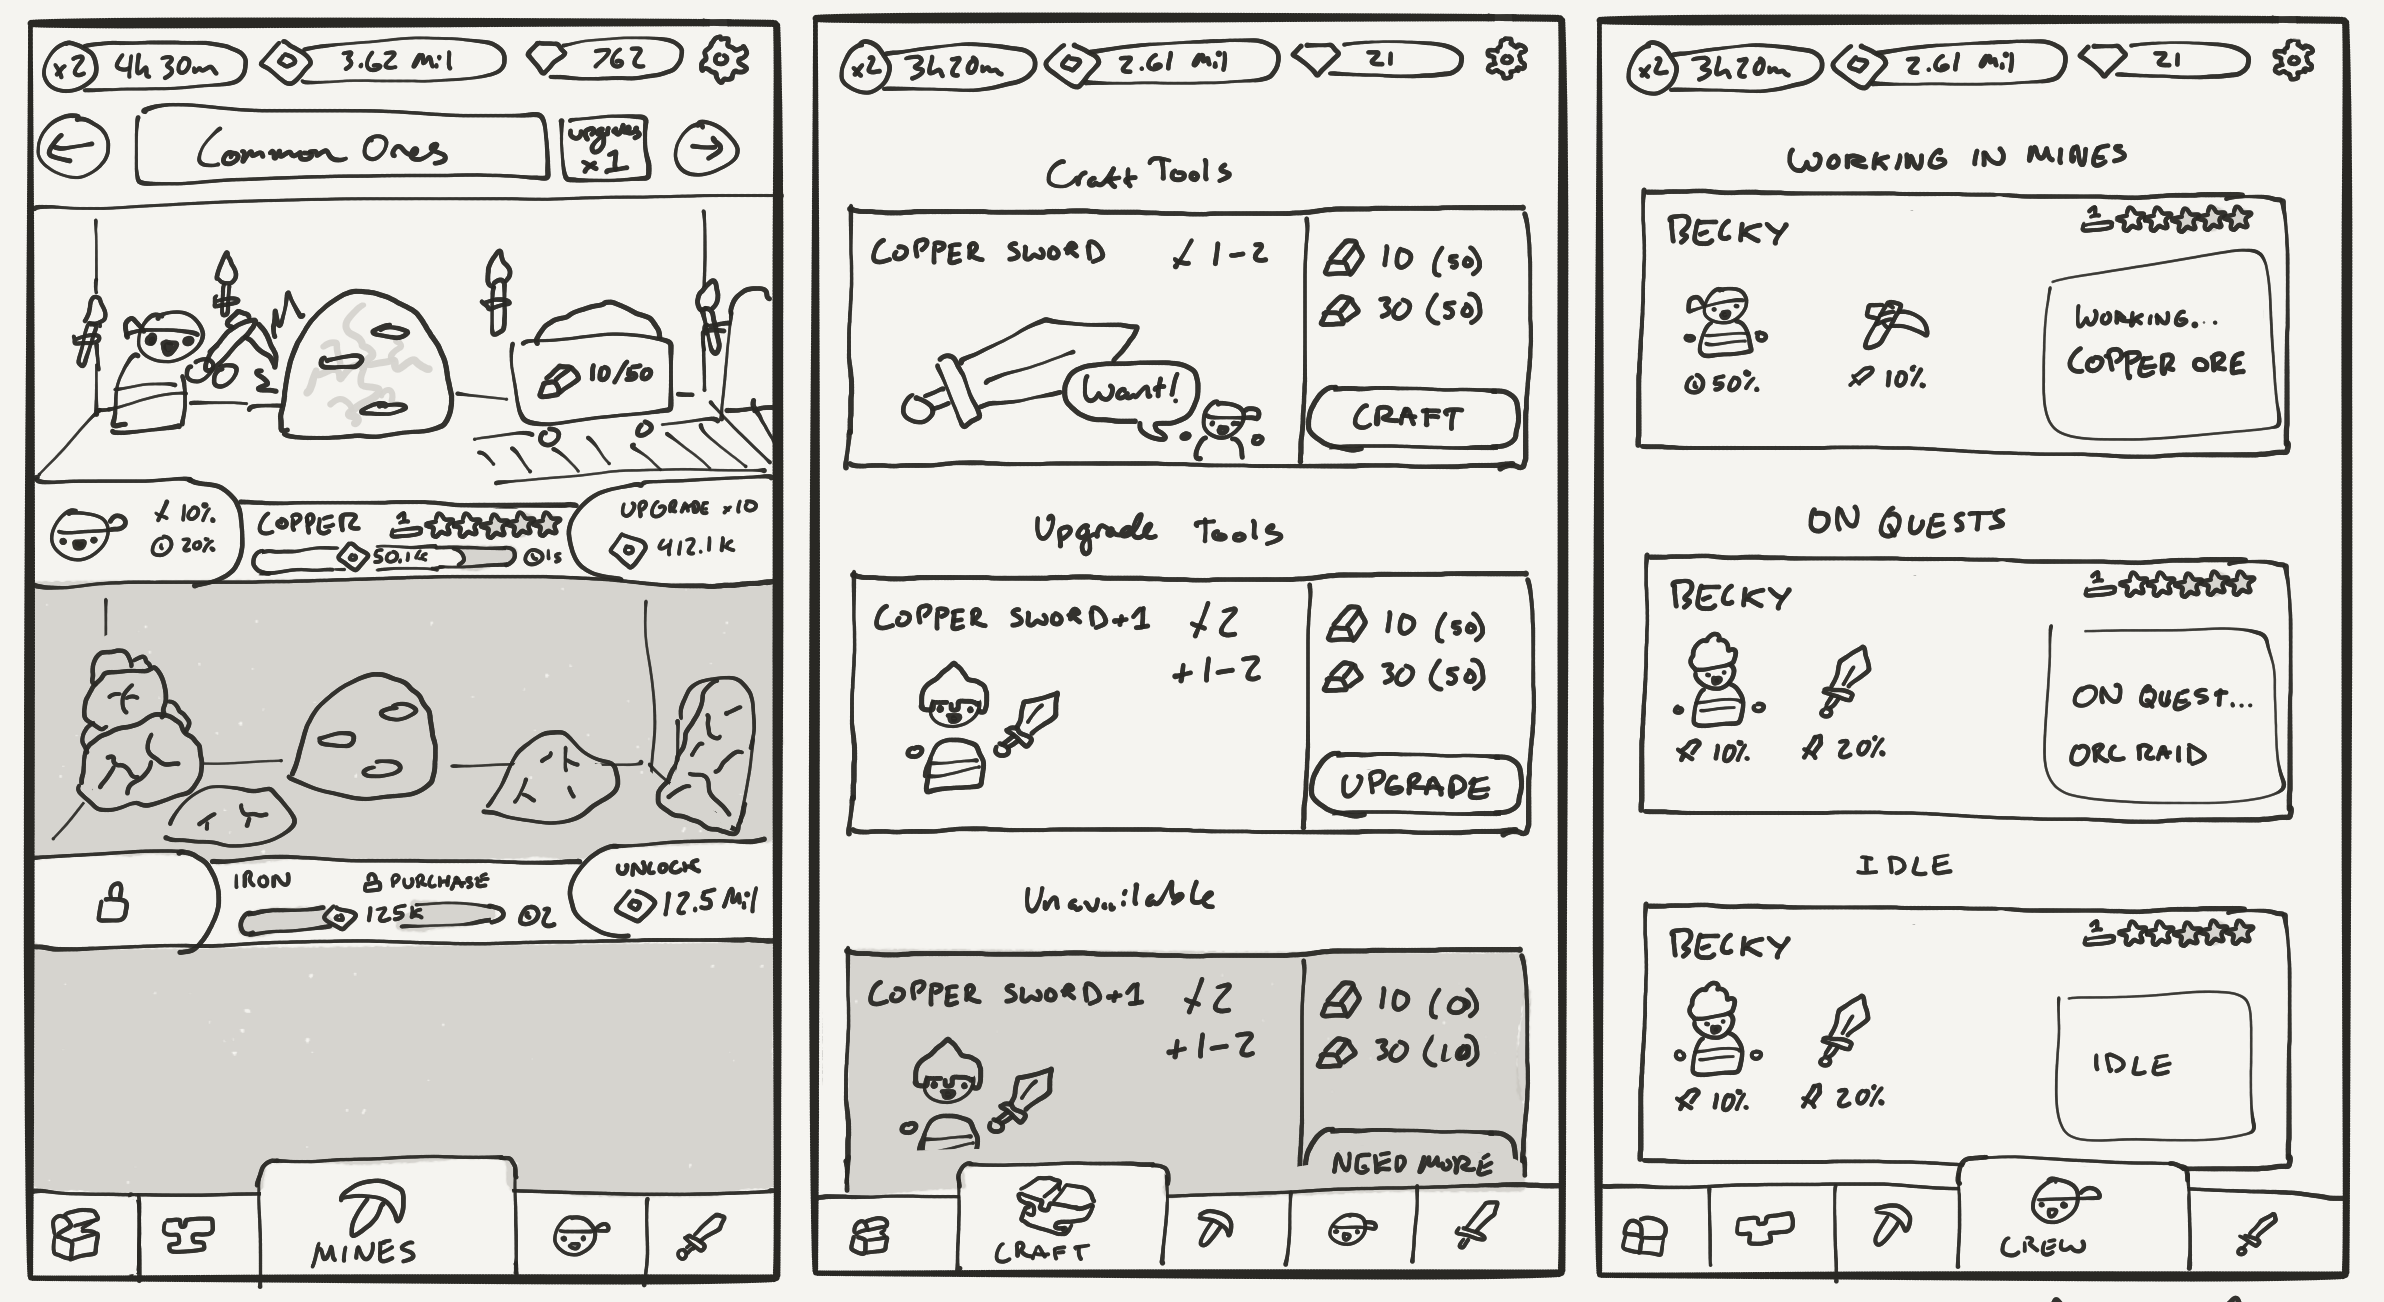 x2 4h 30m 3.62 Mil 762
Common Ones
upgrades
x1
10/50
10%
20%
COPPER 1
50.1k 1s
UPGRADE x10
412.1K
IRON PURCHASE
125K 2
UNLOCK
12.5 Mil
MINES
x2 3h20m 2.61 Mil 21
Craft Tools
COPPER SWORD 1-2
10 (50)
30 (50)
Want!
CRAFT
Upgrade Tools
COPPER SWORD+1 2
+1-2
10 (50)
30 (50)
UPGRADE
Unavailable
COPPER SWORD+1 2
+1-2
10 (0)
30 (10)
NEED MORE
CRAFT
x2 3h20m 2.61 Mil 21
WORKING IN MINES
BECKY 1
WORKING...
COPPER ORE
50% 10%
ON QUESTS
BECKY 1
ON QUEST...
ORC RAID
10% 20%
IDLE
BECKY 1
IDLE
10% 20%
CREW